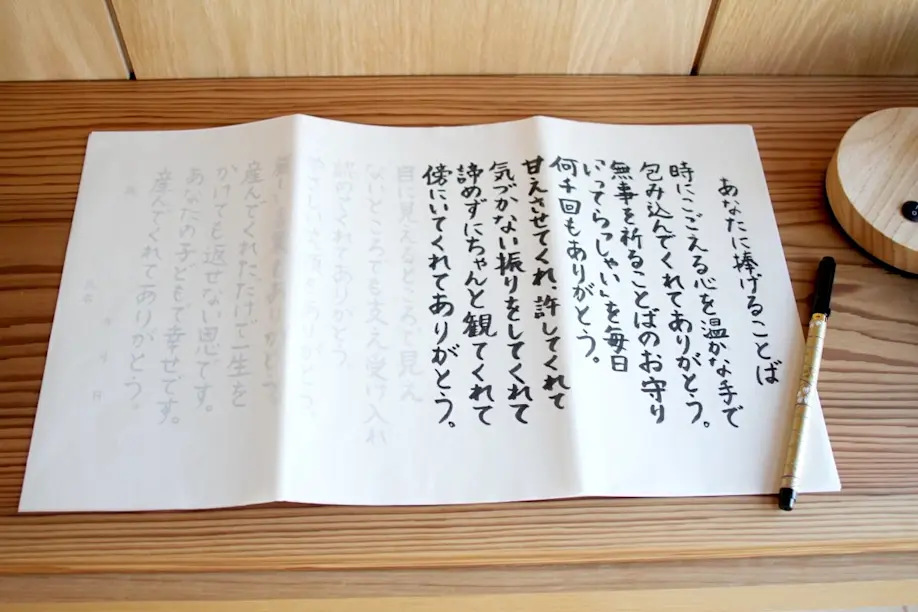 あなたに捧げることば
時にこごえる心を温かな手で
包み込んでくれてありがとう。
無事を祈ることばのお守り
「いってらっしゃい」を毎日
何千回もありがとう。
甘えさせてくれ、許してくれて
気づかない振りをしてくれて
諦めずにちゃんと観てくれて
傍にいてくれてありがとう。
目に見えるところも見え
ないところでも支え受け入れ
認めてくれてありがとう。
産んでくれただけで一生を
かけても返せない恩です。
あなたの子どもで幸せです。
産んでくれてありがとう。
月 日